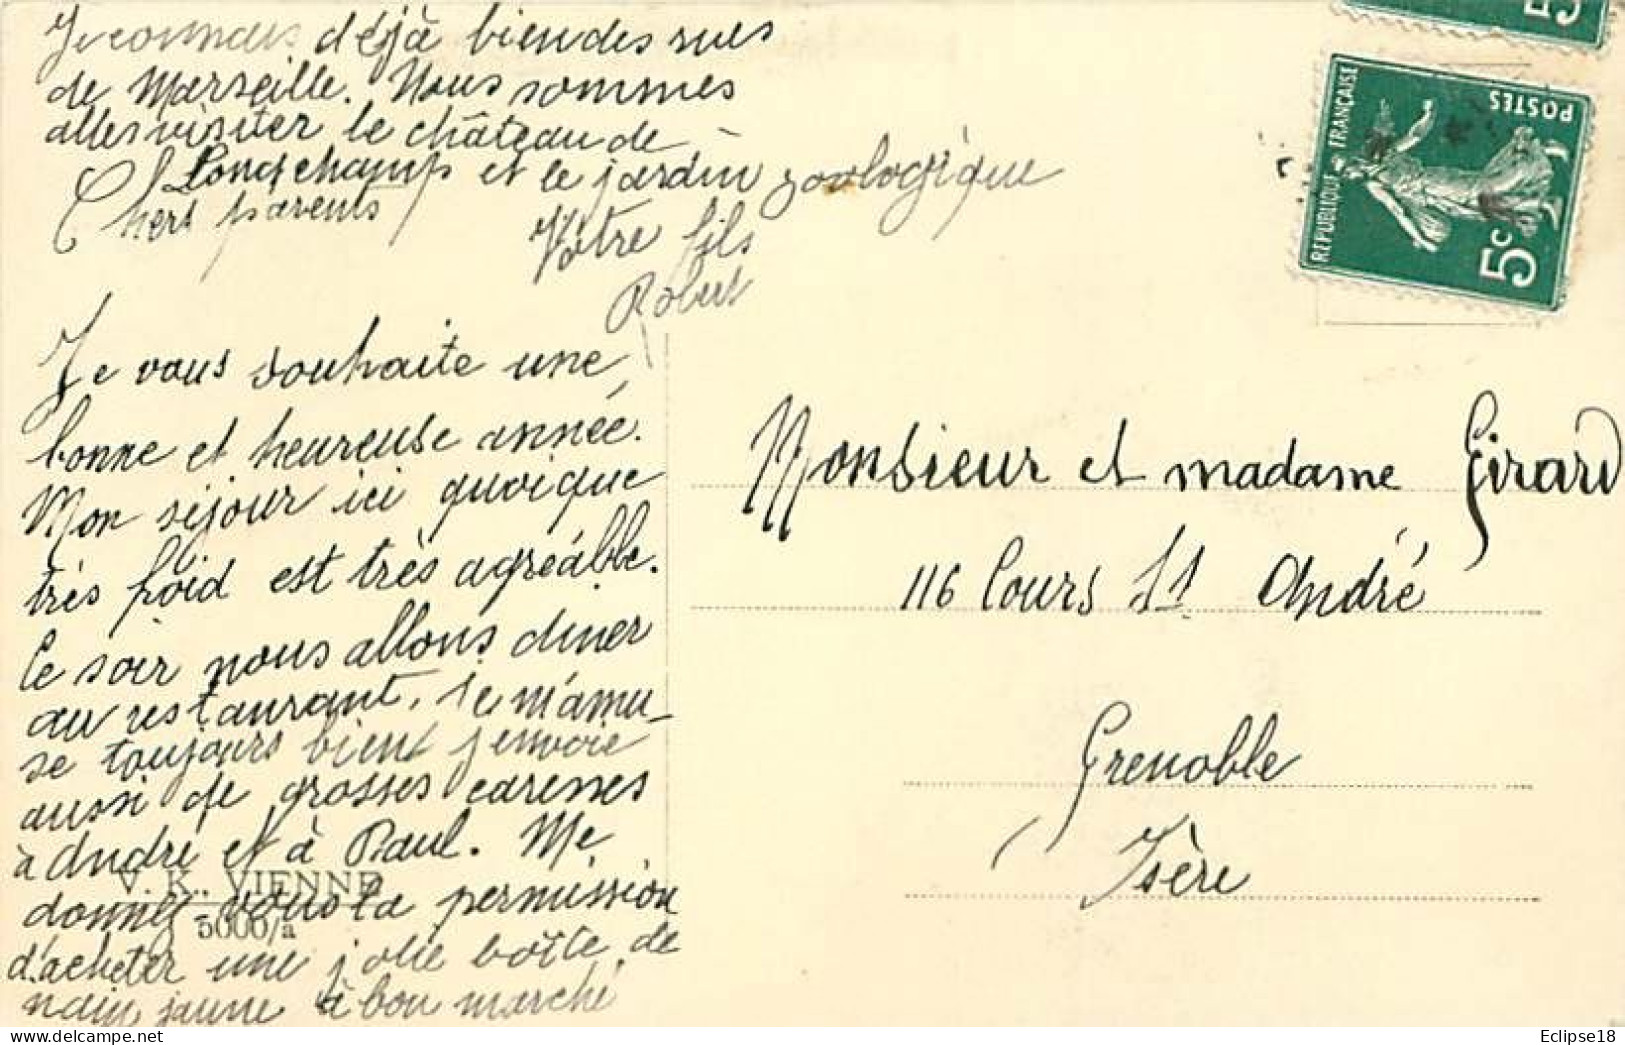 Je connais déjà bien des rues
de Marseille. Nous sommes
allés visiter le château de
Longchamp et le jardin zoologique
Votre fils
Robert
Chers parents
Je vous souhaite une
bonne et heureuse année.
Mon séjour ici quoique
très froid est très agréable.
Ce soir nous allons diner
au restaurant. Je m'amu-
se toujours bien j'envoie
aussi de grosses caresses
à André et à Paul. Me
donnez-vous la permission
d'acheter une jolie boîte de
nain jaune à bon marché
V. K., VIENNE
5000/a
REPUBLIQUE FRANÇAISE
POSTES
5c
Monsieur et madame Girard
116 Cours St André
Grenoble
Isère
Eclipse18